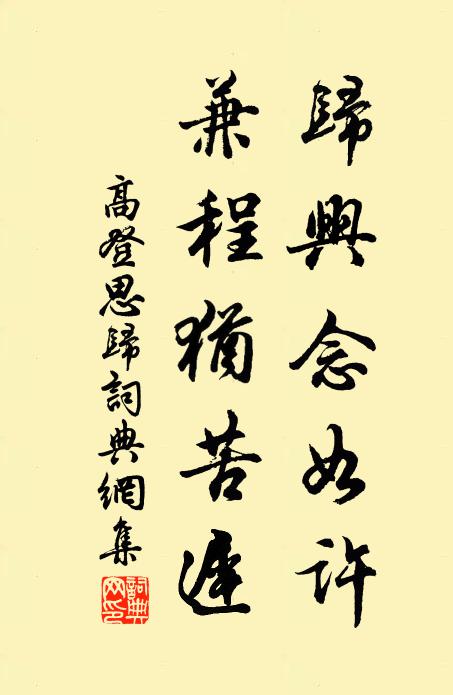 歸興念如許
兼程猶苦遲
高登思歸詞典網集
詞典網印